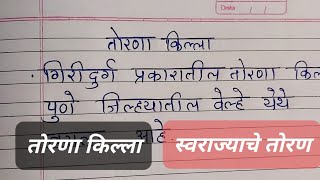 Date
तोरणा किल्ला
. गिरीदुर्ग प्रकारातील तोरणा
पुणे जिल्ह्यातील वेल्हे येथे
आहे
तोरणा किल्ला
स्वराज्याचे तोरण